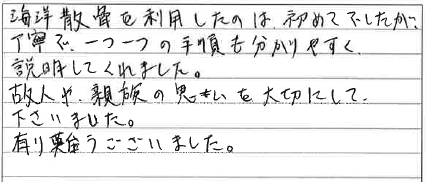 海洋散骨を利用したのは、初めてでしたが、
丁寧で、一つ一つの手順も分かりやすく、
説明してくれました。
故人や、親族の思いを大切にして、
下さいました。
有り難うございました。